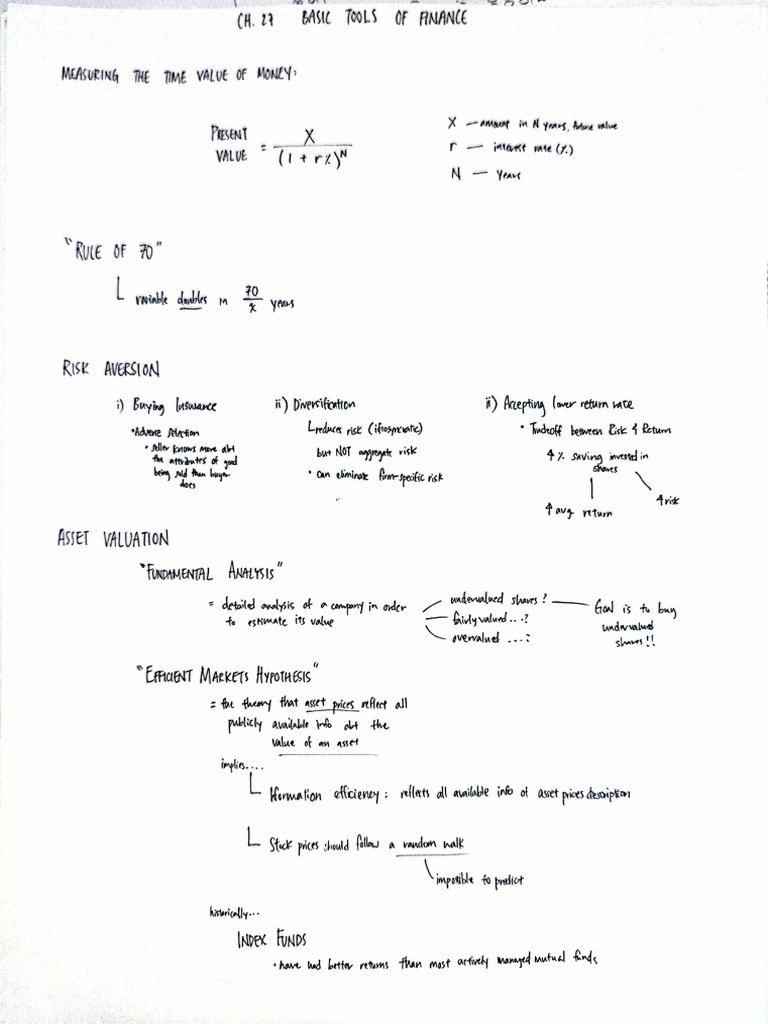 CH. 27 BASIC TOOLS OF FINANCE
MEASURING THE TIME VALUE OF MONEY:
PRESENT VALUE = X / (1 + r%)^N
X — amount in N years, future value
r — interest rate (%)
N — years
"RULE OF 70"
variable doubles in 70/x years
RISK AVERSION
i) Buying Insurance
• Adverse Selection
• seller knows more abt
the attributes of good
being sold than buyer
does
ii) Diversification
reduces risk (ifiosyncratic)
but NOT aggregate risk
• can eliminate firm-specific risk
ii) Accepting lower return rate
• Tradeoff between Risk & Return
↑ % saving invested in
shares
↑ avg return
↑ risk
ASSET VALUATION
"FUNDAMENTAL ANALYSIS"
= detailed analysis of a company in order
to estimate its value
undervalued shares?
fairly valued ...?
overvalued ...?
Goal is to buy
undervalued
shares!!
"EFFICIENT MARKETS HYPOTHESIS"
= the theory that asset prices reflect all
publicly available info abt the
value of an asset
implies....
Information efficiency: reflects all available info of asset prices description
Stock prices should follow a random walk
impossible to predict
historically...
INDEX FUNDS
• have had better returns than most actively managed mutual funds